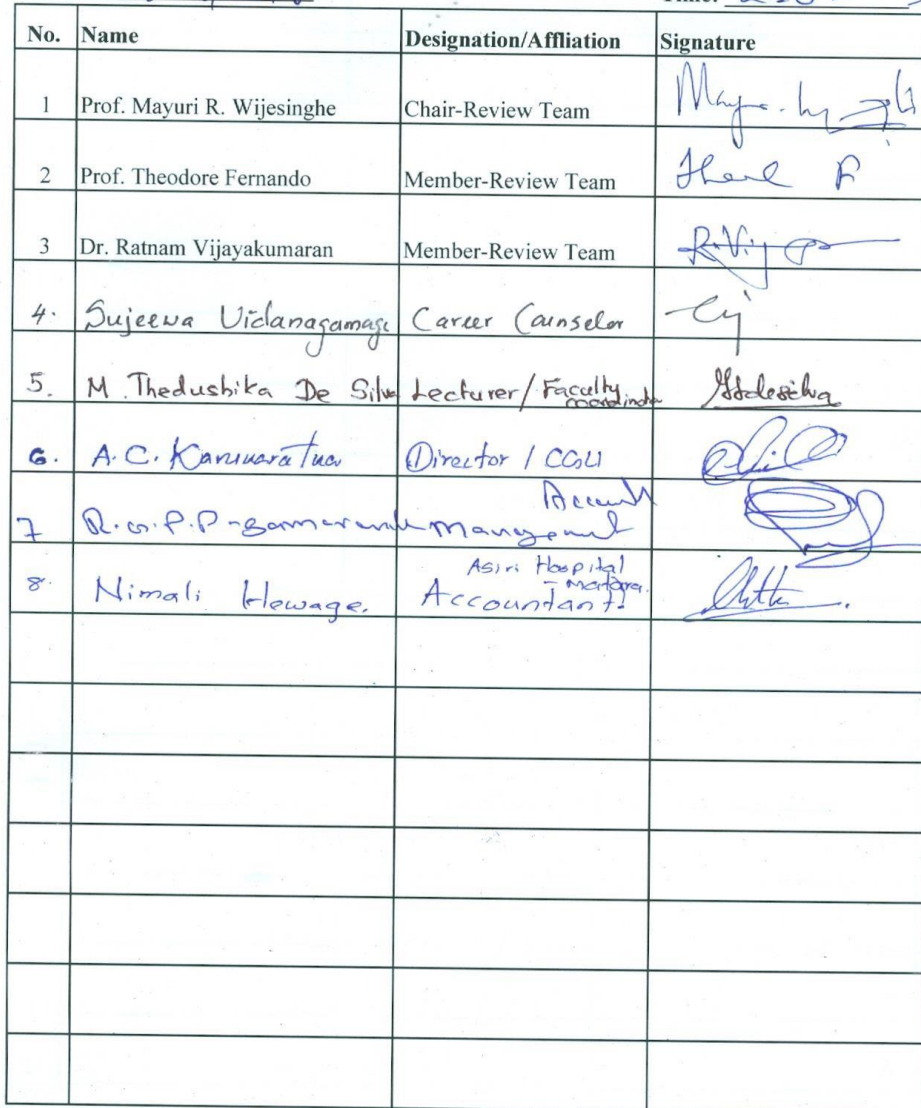 No. Name Designation/Affliation Signature
1 Prof. Mayuri R. Wijesinghe Chair-Review Team
2 Prof. Theodore Fernando Member-Review Team
3 Dr. Ratnam Vijayakumaran Member-Review Team R.Vij
4. Sujeewa Vidanagamage Career Counselor
5. M. Thedushika De Silva Lecturer/Faculty coordinator
6. A.C. Karunaratna Director / CGU
7 R.G.P.P.
Asiri Hospital
8. Nimali Hewage. Accountant - Matara.